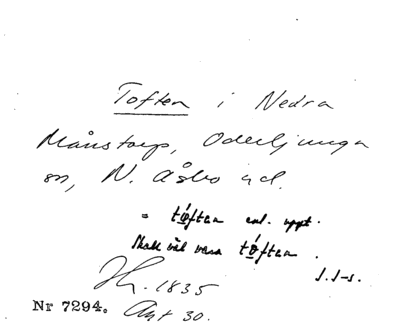 Toften i Nedra
Månstorp, Oderljunga
sn, N. Åsbo hd.
= tóftan enl. uppt.
Skall väl vara tóftan.
J. J-s.
1835
Nr 7294. Akt 30.